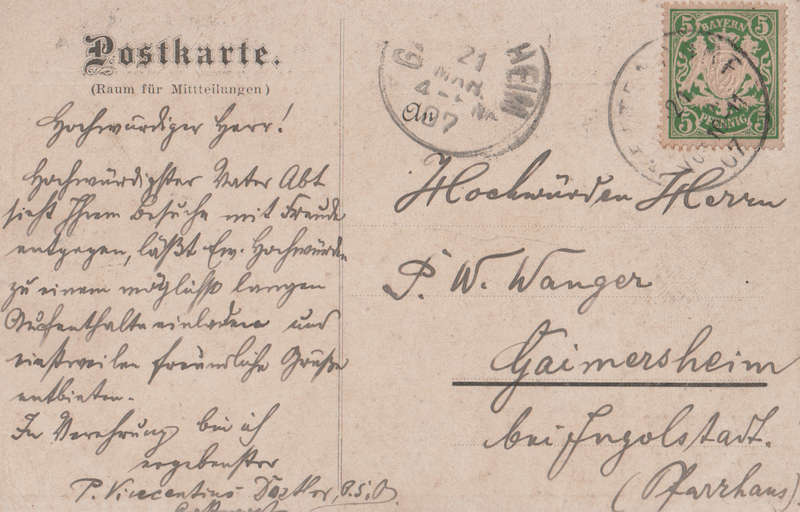 Postkarte.
(Raum für Mittteilungen)
Hochwürdiger Herr!
Hochwürdigster Vater Abt
sieht Ihrem Besuche mit Freude
entgegen, läßt Ew. Hochwürden
zu einem möglichst langen
Aufenthalte einladen und
einstweilen freundliche Grüße
entbieten.
In Verehrung bin ich
ergebenster
P. Vincentius
HEIM
21
MAR.
07
An
BAYERN
5 5
5 PFENNIG 5
Hochwürden Herrn
P. W. Wanger
Gaimersheim
bei Ingolstadt.
(Pfarrhaus)